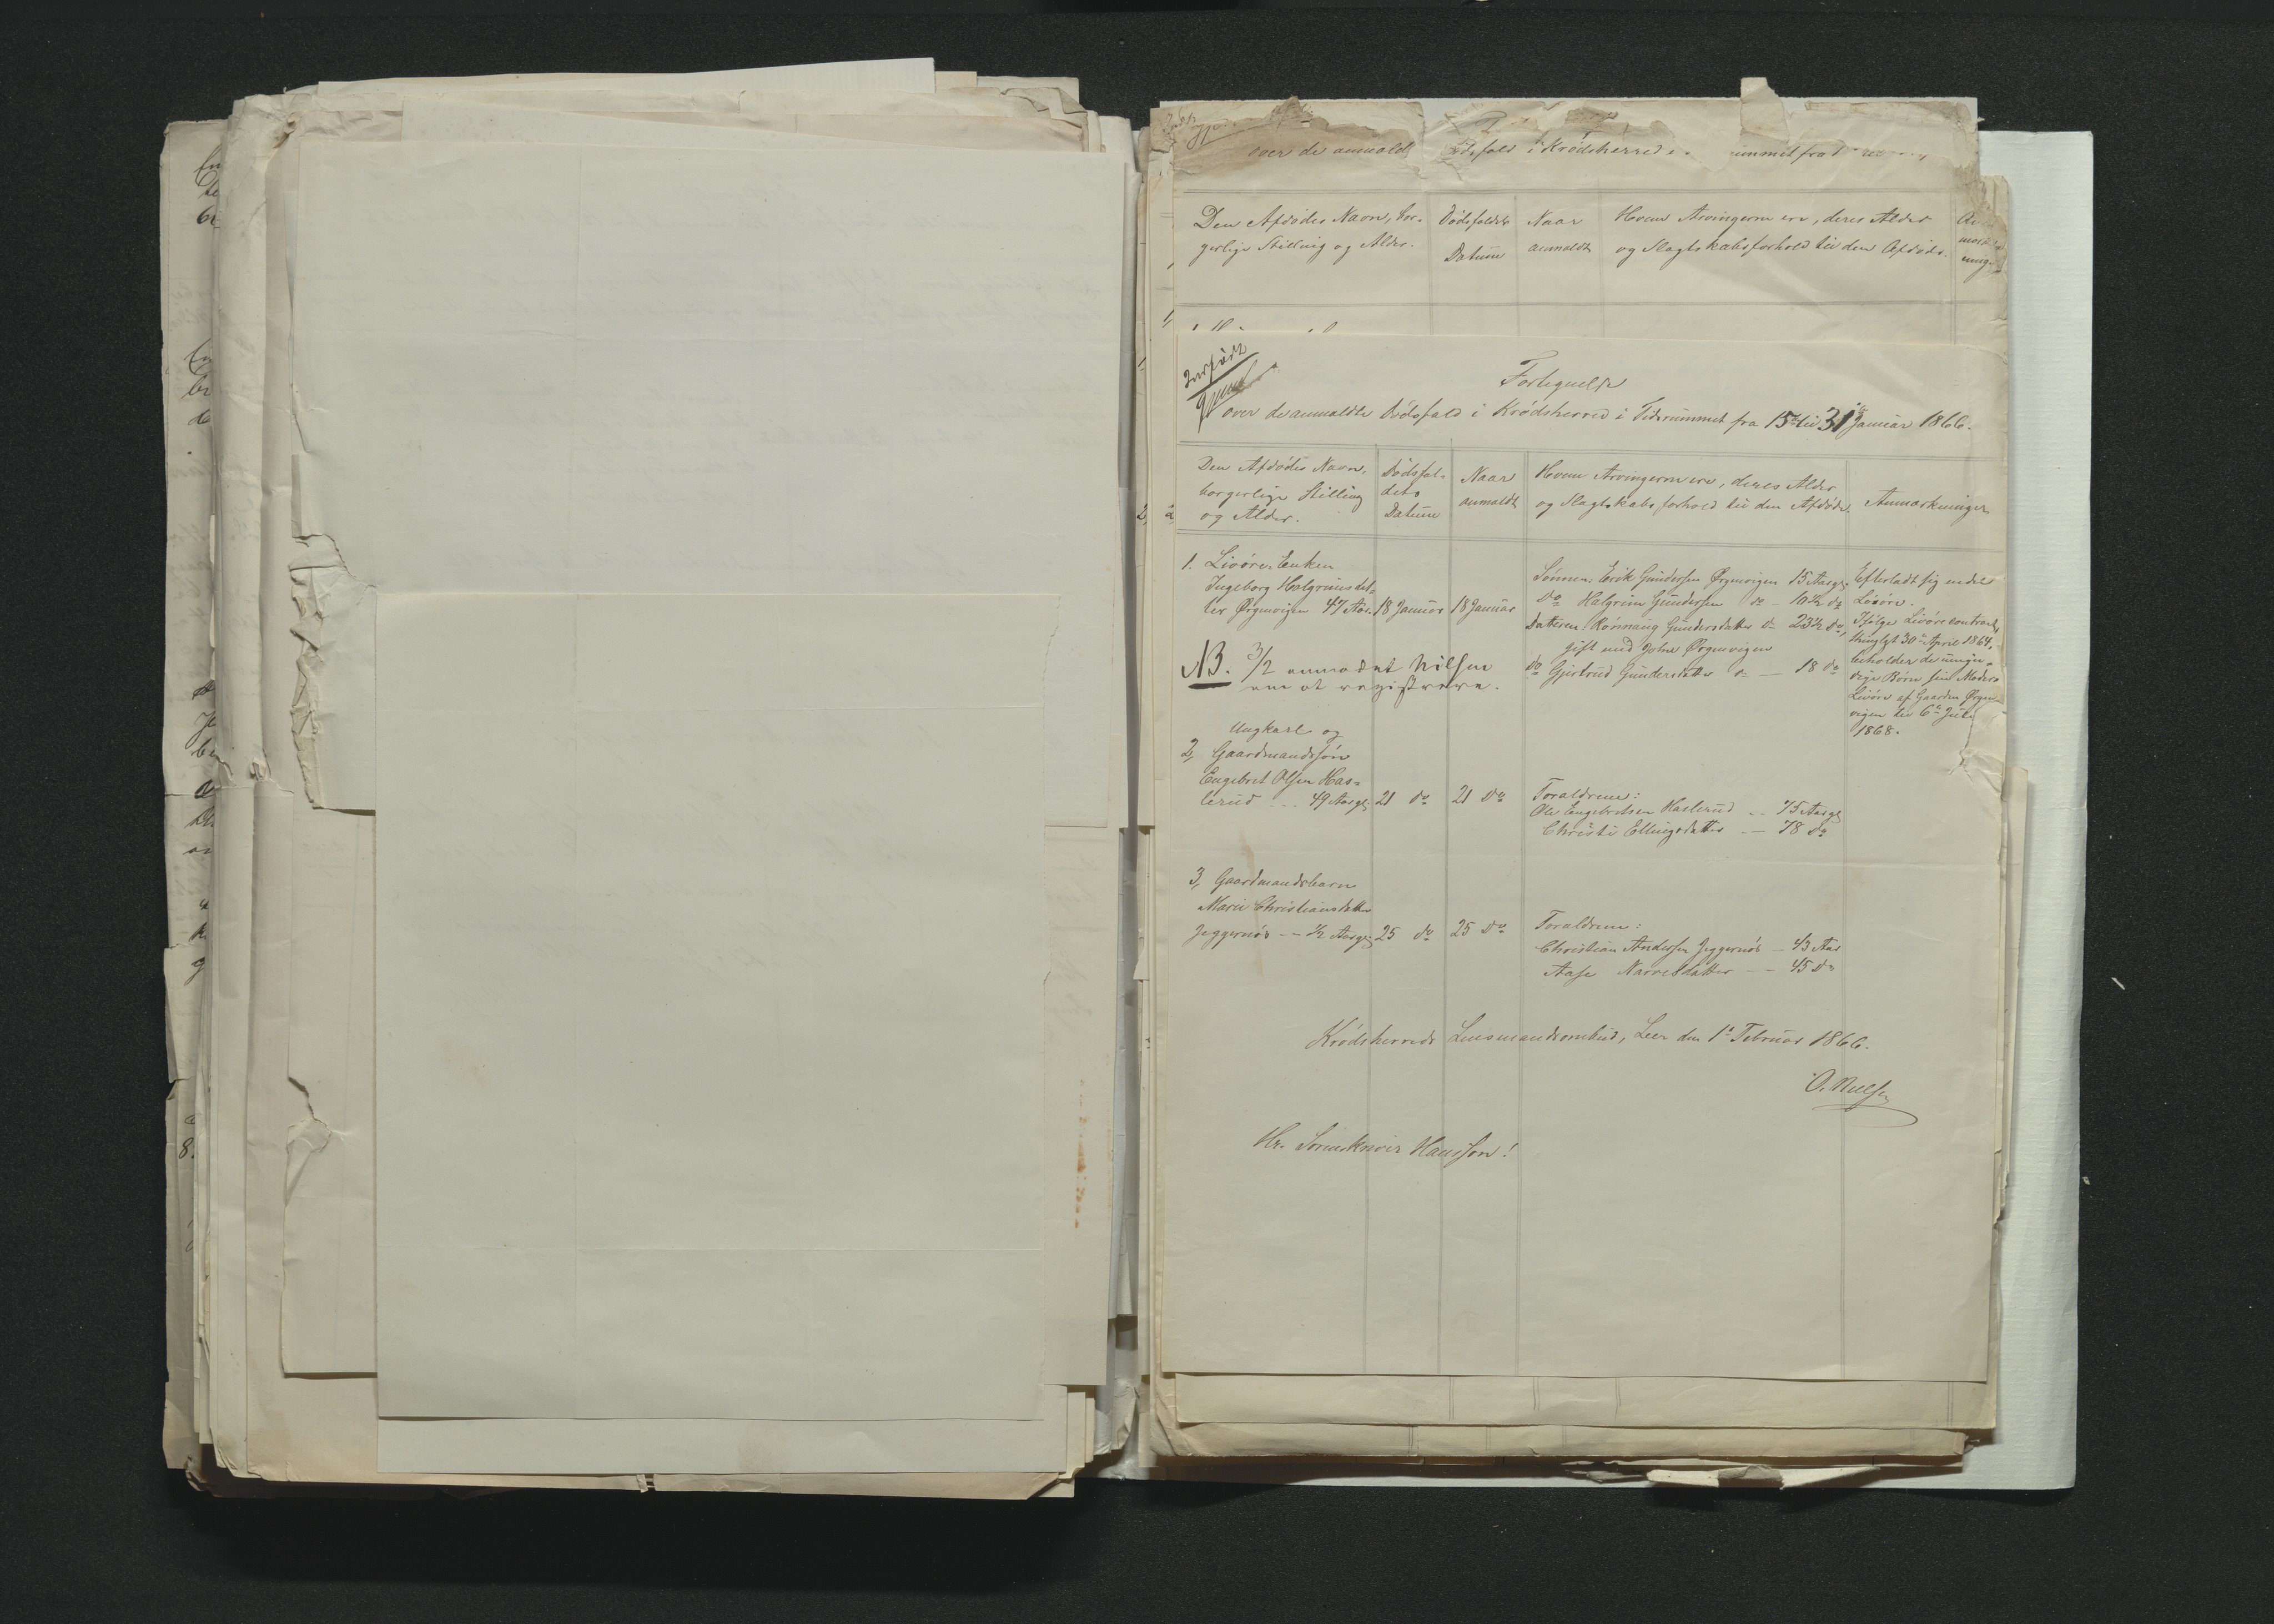 over de anmeldte Dødsfald i Krødsherred i
Den Afdødes Navn, bor-
gerlige Stilling og Alder.
Dødsfaldets
Datum
Naar
anmeldt
Hvem Arvingerne ere, deres Alder
og Slagtskabsforhold til den Afdøde.
Indført
Fortegnelse
over de anmeldte Dødsfald i Krødsherred i Tidsrummet fra 15de til 31te Januar 1866.
Den Afdødes Navn,
borgerlige Stilling
og Alder.
Dødsfal-
dets
Datum
Naar
anmeldt
Hvem Arvingerne ere, deres Alder
og Slagtskabsforhold til den Afdøde.
Anmærkninger
1. Livøre Enken
Ingeborg Halgrimsdat-
ter Ørgenvigen 47 Aar
18 Januar
18 Januar
Sønnen: Erik Gundersen Ørgenvigen 15 Aar gl.
Do Halgrim Gundersen do — 10½ do
Datteren: Rønnaug Gundersdatter do 23½ do,
gift med John Ørgenvigen
do Gjertrud Gundersdatter do — 18 do
Efterladt sig endel
Løsøre.
Ifølge Livørecontract,
thinglyst 30te April 1864,
beholder de umyn-
dige Børn sin Moders
Livøre af Gaarden Ørgen-
vigen til 6te Juli
1868.
NB. 3/2 anmodet Nilsen
om at registrere.
Ungkarl og
2, Gaardmandssøn
Engebret Olsen Has-
lerud ... 49 Aar gl.
21 do
21 do
Foraldrene:
Ole Engebretsen Haslerud -- 75 Aar gl
Christi Ellingsdatter -- 78 do
3, Gaardmandsbarn
Marie Christiansdatter
Jeggernæs -- ½ Aar gl.
25 do
25 do
Foraldrene:
Christian Andersen Jeggernæs — 43 Aar
Aase Narvesdatter -- 45 do
Krødsherreds Lensmandsombud, Leer den 1te Februar 1866.
O. Nielsen
Hr. Sorenskriver Hansson!